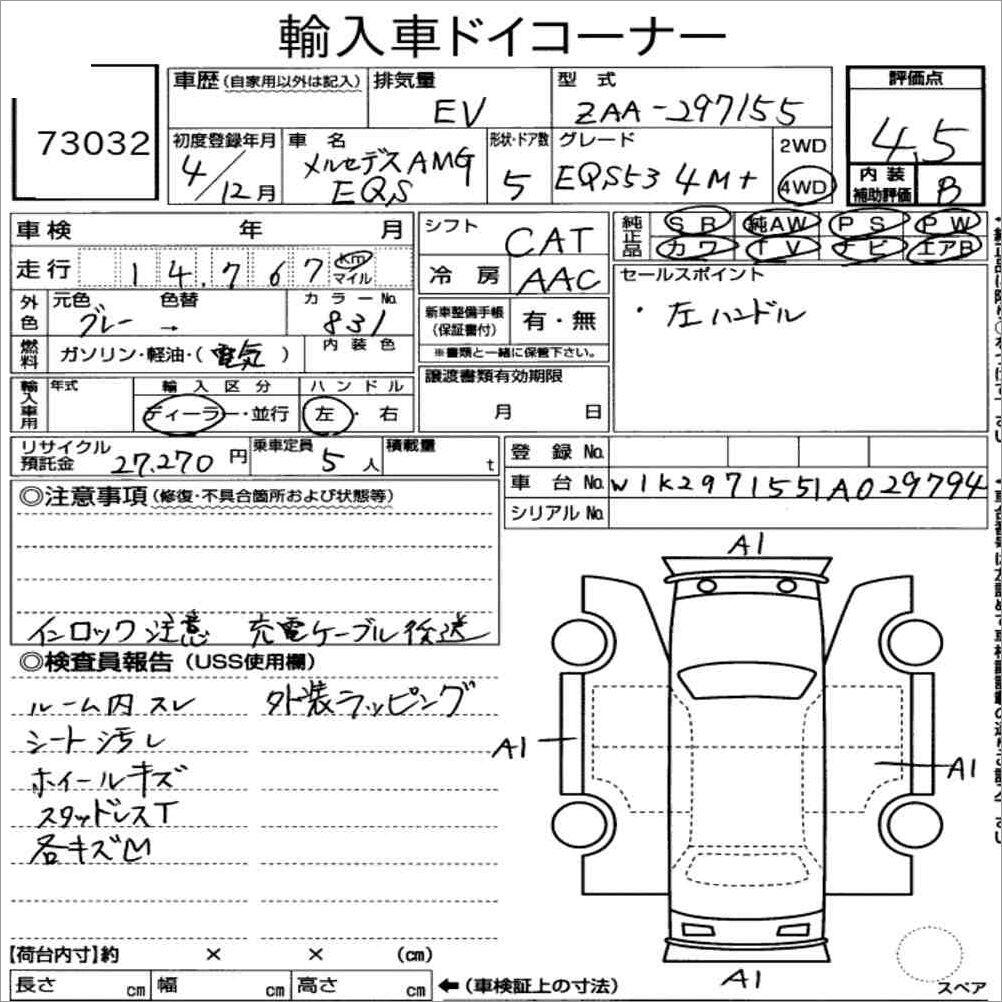 輸入車ドイコーナー
73032
車歴 (自家用以外は記入) 排気量 EV 型式 ZAA-297155
評価点 4.5
内装補助評価 B
初度登録年月 4/12月 車名 メルセデスAMG EQS 形状・ドア数 5 グレード EQS53 4M+ 2WD 4WD
車検 年 月
走行 14,767 km マイル
シフト CAT
冷房 AAC
純正品 SR 純AW PS PW
カワ TV ナビ エアB
セールスポイント
・左ハンドル
外色 元色 グレー 色替 → カラーNo. 831
燃料 ガソリン・軽油・(電気) 内装色
新車整備手帳(保証書付) 有・無
※書類と一緒に保管下さい。
譲渡書類有効期限
月 日
輸入車用 年式 輸入区分 ハンドル
ディーラー・並行 左・右
リサイクル預託金 27,270円 乗車定員 5人 積載量 t
登録No.
車台No. W1K2971551A029794
シリアルNo.
◎注意事項(修復・不具合箇所および状態等)
インロック注意 充電ケーブル後送
◎検査員報告(USS使用欄)
ルーム内スレ 外装ラッピング
シート汚レ
ホイールキズ
スタッドレスT
各キズ凹
A1
A1
A1
A1
【荷台内寸】約 × × (cm)
長さ cm 幅 cm 高さ cm ←(車検証上の寸法)
スペア